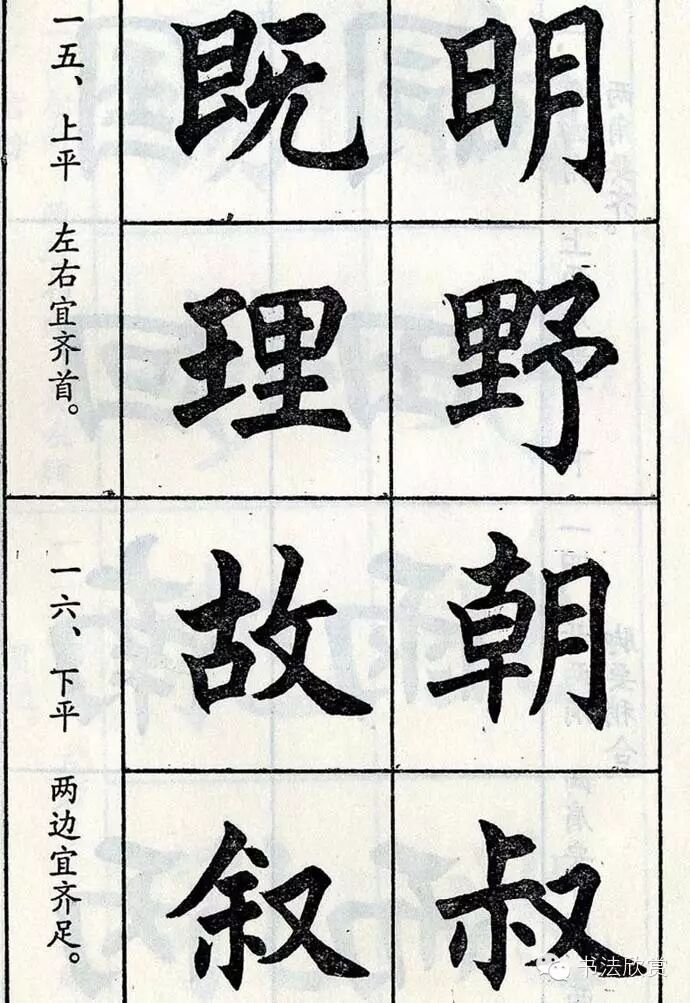 一五、上平 左右宜齐首。
既 明
理 野
一六、下平 两边宜齐足。
故 朝
叙 叔
书法欣赏